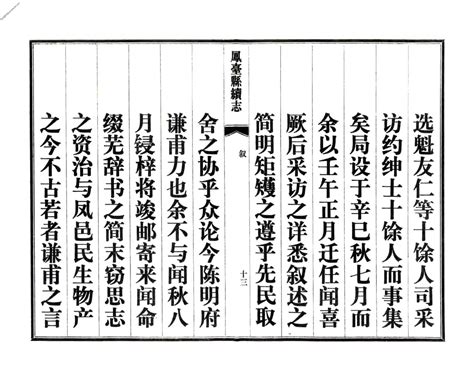 选魁友仁等十馀人司采
访约绅士十馀人而事集
矣局设于辛巳秋七月而
余以壬午正月迁任闻喜
厥后采访之详悉叙述之
简明矩矱之遵乎先民取
鳳臺縣續志
叙
十三
舍之协乎众论今陈明府
谦甫力也余不与闻秋八
月锓梓将竣邮寄来闻命
缀芜辞书之简末窃思志
之资治与凤邑民生物产
之今不古若者谦甫之言